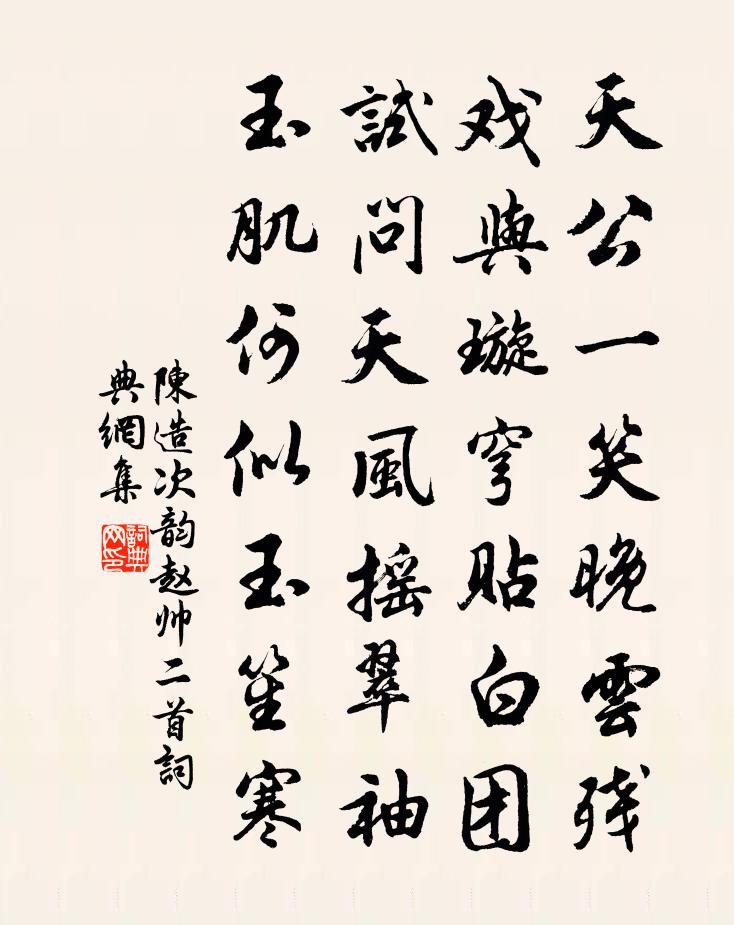 天公一笑晚雲残
戏與璇穹貼白团
試問天風摇翠袖
玉肌何似玉笙寒
陳造次韵赵帅二首詞
典網集
詞典
网印